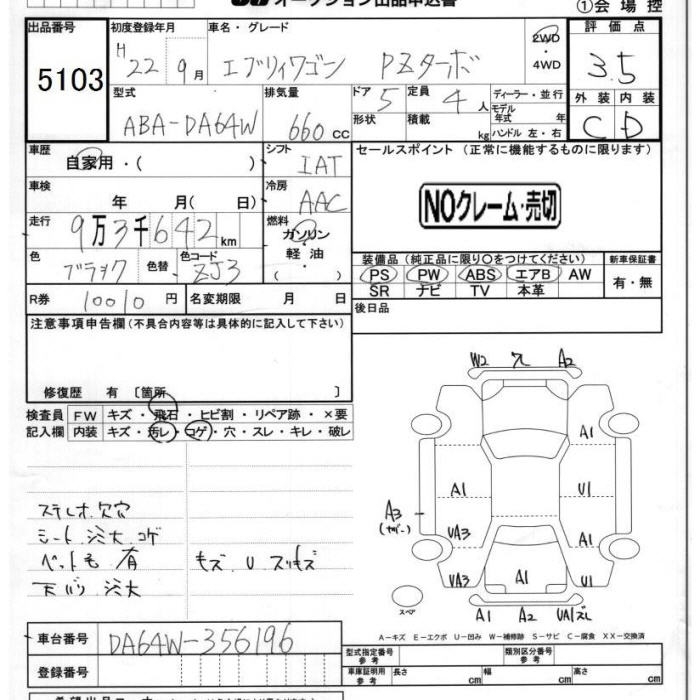 オークション出品申込書
①会場控
出品番号 初度登録年月 車名・グレード 評価点
5103 H22 9月 エブリィワゴン PZターボ 2WD・4WD 3.5
型式 排気量 ドア 定員 ディーラー・並行 外装 内装
ABA-DA64W 660cc 5 4人 モデル年式 年 C D
形状 積載 kg ハンドル 左・右
車歴 シフト セールスポイント (正常に機能するものに限ります)
自家用・( ) IAT
車検 冷房
年 月( 日) AAC NOクレーム・売切
走行 燃料
9万3千642km ガソリン・軽油・( )
色 色替 色コード 装備品 (純正品に限り○をつけてください) 新車保証書
ブラック ZJ3 PS PW ABS エアB AW 有・無
SR ナビ TV 本革
R券 10010円 名変期限 月 日 後日品
注意事項申告欄 (不具合内容等は具体的に記入して下さい)
修復歴 有 〔箇所 〕
検査員 FW キズ・飛石・ヒビ割・リペア跡・×要
記入欄 内装 キズ・汚レ・コゲ・穴・スレ・キレ・破レ
ステレオ欠穴
シート 汚大 コゲ
ペット毛 有 キズ U スリキズ
天バリ 汚大
W2 A2
A1
A1 U1
A3
UA3 A1
UA3 A1 U1
スペア
A1 A2 UA1ズレ
A-キズ E-エクボ U-凹み W-補修跡 S-サビ C-腐食 XX-交換済
車台番号 DA64W-356196 型式指定番号 参考 類別区分番号 参考
登録番号 車庫証明用 参考 長さ cm 幅 cm 高さ cm